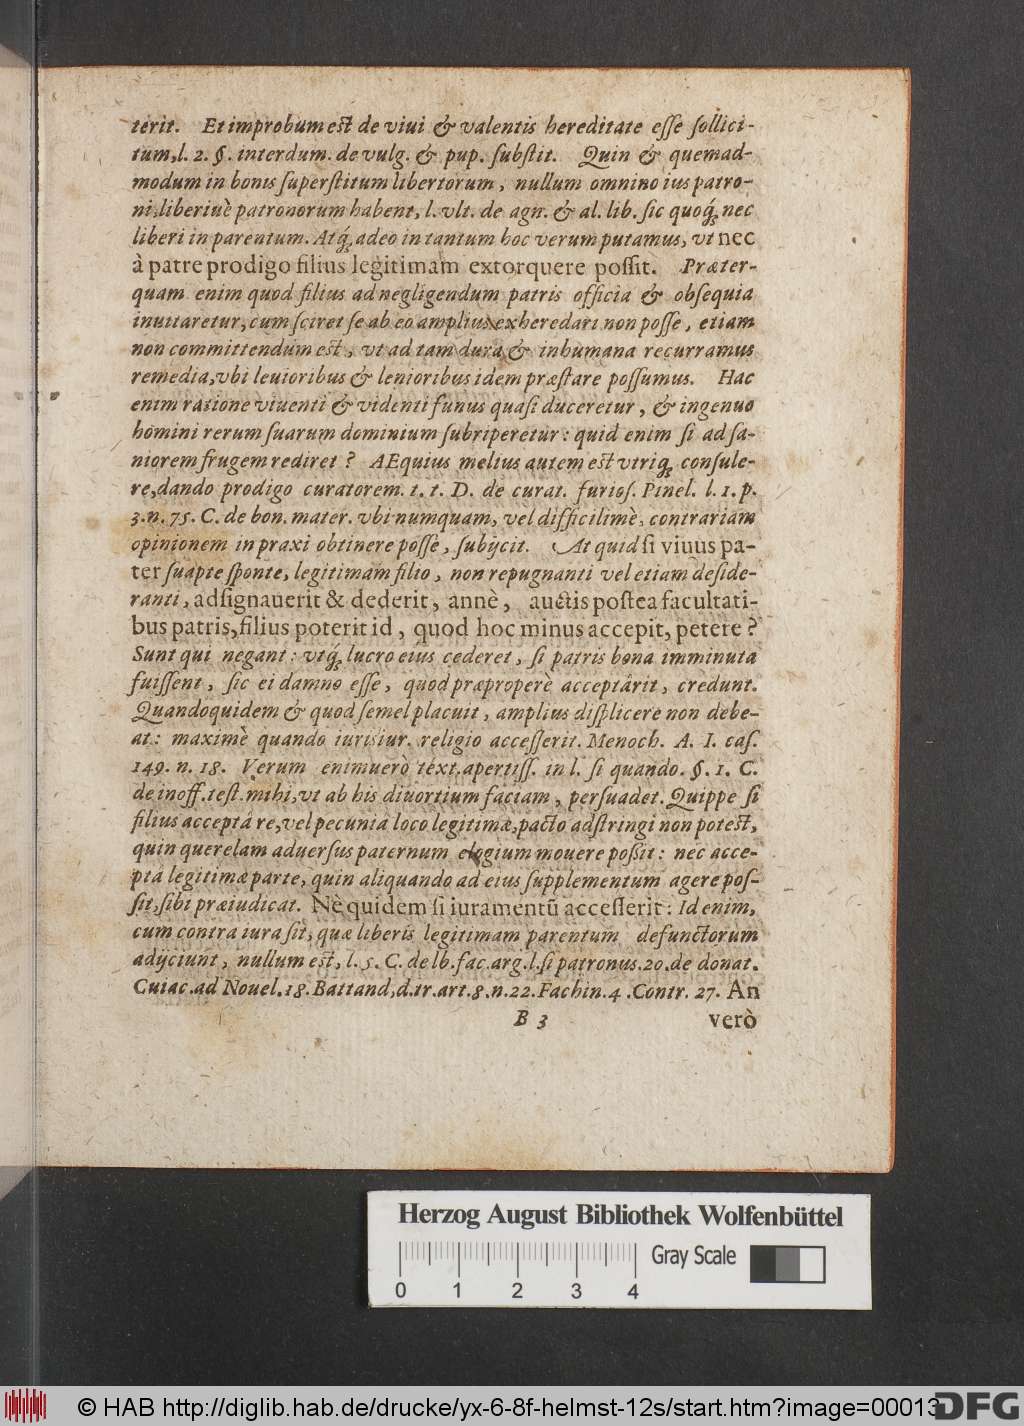 terit. Et improbum est de viui & valentis hereditate esse sollici-
tum, l. 2. §. interdum. de vulg. & pup. substit. Quin & quemad-
modum in bonis superstitum libertorum, nullum omnino ius patro-
ni, liberiuè patronorum habent, l. vlt. de agn. & al. lib. sic quoq́; nec
liberi in parentum. Atq́; adeo in tantum hoc verum putamus, vt nec
à patre prodigo filius legitimam extorquere possit. Præter-
quam enim quod filius ad negligendum patris officia & obsequia
inuitaretur, cum sciret se ab eo amplius exheredari non posse, etiam
non committendum est, vt ad tam dura & inhumana recurramus
remedia, vbi leuioribus & lenioribus idem præstare possumus. Hac
enim ratione viuenti & videnti funus quasi duceretur, & ingenuo
homini rerum suarum dominium subriperetur: quid enim si ad sa-
niorem frugem rediret? AEquius melius autem est vtriq; consule-
re, dando prodigo curatorem. t. t. D. de curat. furios. Pinel. l. 1. p.
3. n. 75. C. de bon. mater. vbi numquam, vel difficilimè, contrariam
opinionem in praxi obtinere posse, subijcit. At quid si viuus pa-
ter suapte sponte, legitimam filio, non repugnanti vel etiam deside-
ranti, adsignauerit & dederit, annè, auctis postea facultati-
bus patris, filius poterit id, quod hoc minus accepit, petere?
Sunt qui negant: vtq́; lucro eius cederet, si patris bona imminuta
fuissent, sic ei damno esse, quod præproperè acceptárit, credunt.
Quandoquidem & quod semel placuit, amplius displicere non debe-
at: maximè quando iurisiur. religio accesserit. Menoch. A. I. cas.
149. n. 18. Verum enimuerò text. apertiss. in l. si quando. §. 1. C.
de inoff. test. mihi, vt ab his diuortium faciam, persuadet. Quippe si
filius acceptá re, vel pecuniá loco legitimæ, pacto adstringi non potest,
quin querelam aduersus paternum elogium mouere possit: nec acce-
ptá legitimæ parte, quin aliquando ad eius supplementum agere pos-
sit, sibi præiudicat. Nè quidem si iuramentũ accesserit: Id enim,
cum contra iura sit, quæ liberis legitimam parentum defunctorum
adijciunt, nullum est, l. 5. C. de lb. fac. arg. l. si patronus. 20. de donat.
Cuiac. ad Nouel. 18. Battand, d. tr. art. 8. n. 22. Fachin. 4. Contr. 27. An
B 3 verò
Herzog August Bibliothek Wolfenbüttel
Gray Scale
0 1 2 3 4
© HAB http://diglib.hab.de/drucke/yx-6-8f-helmst-12s/start.htm?image=00013
DFG